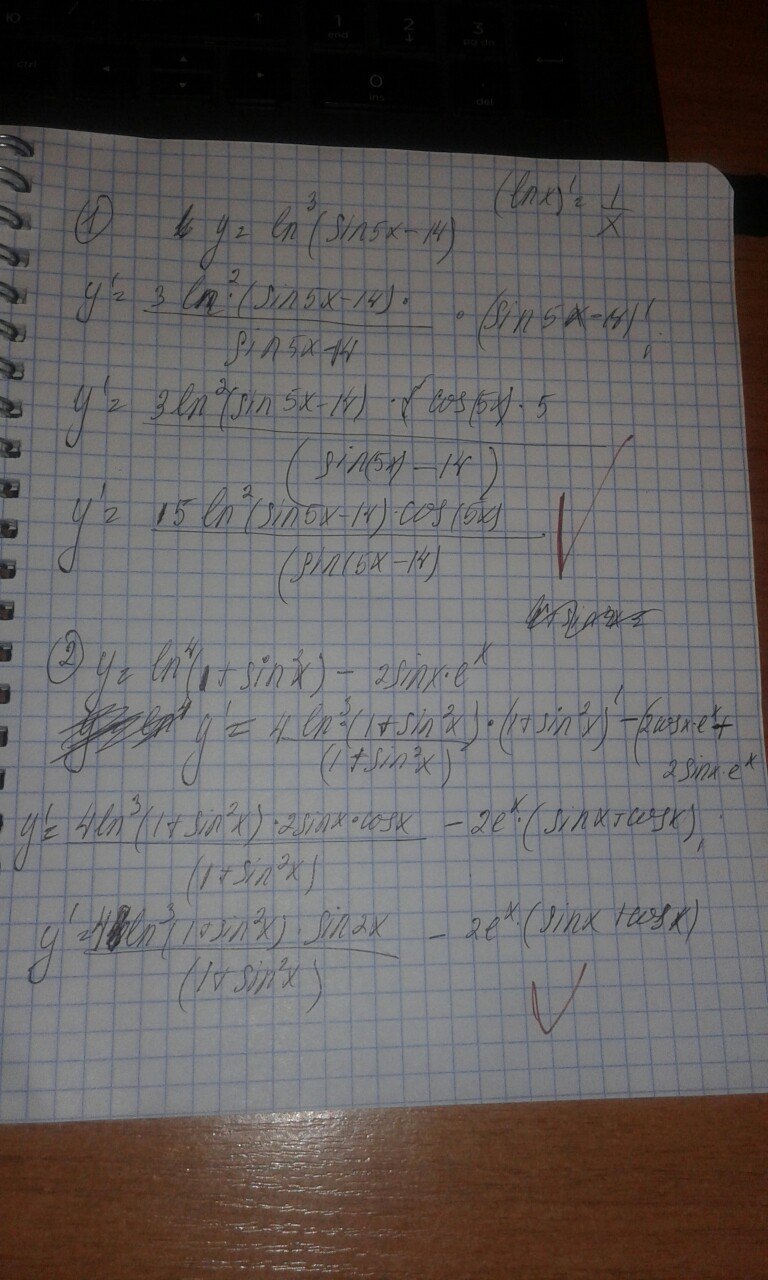 1 2 3
end ↓ pg dn
ctrl 0
ins del
(ln x)' = 1/x
① y = ln³(sin5x-14)
y' = 3 ln²(sin5x-14)· / sin5x-14 · (sin5x-14)';
y' = 3ln²(sin5x-14) · cos(5x)·5 / (sin(5x)-14)
y' = 15 ln²(sin5x-14)·cos(5x) / (sin(5x-14)
② y = ln⁴(1+sin²x) - 2sinx·eˣ
y' = 4 ln³(1+sin²x) / (1+sin²x) · (1+sin²x)' - (2cosx·eˣ+
2sinx·eˣ
y' = 4ln³(1+sin²x)·2sinx·cosx / (1+sin²x) - 2eˣ·(sinx+cosx);
y' = 4ln³(1+sin²x)·sin2x / (1+sin²x) - 2eˣ·(sinx+cosx)